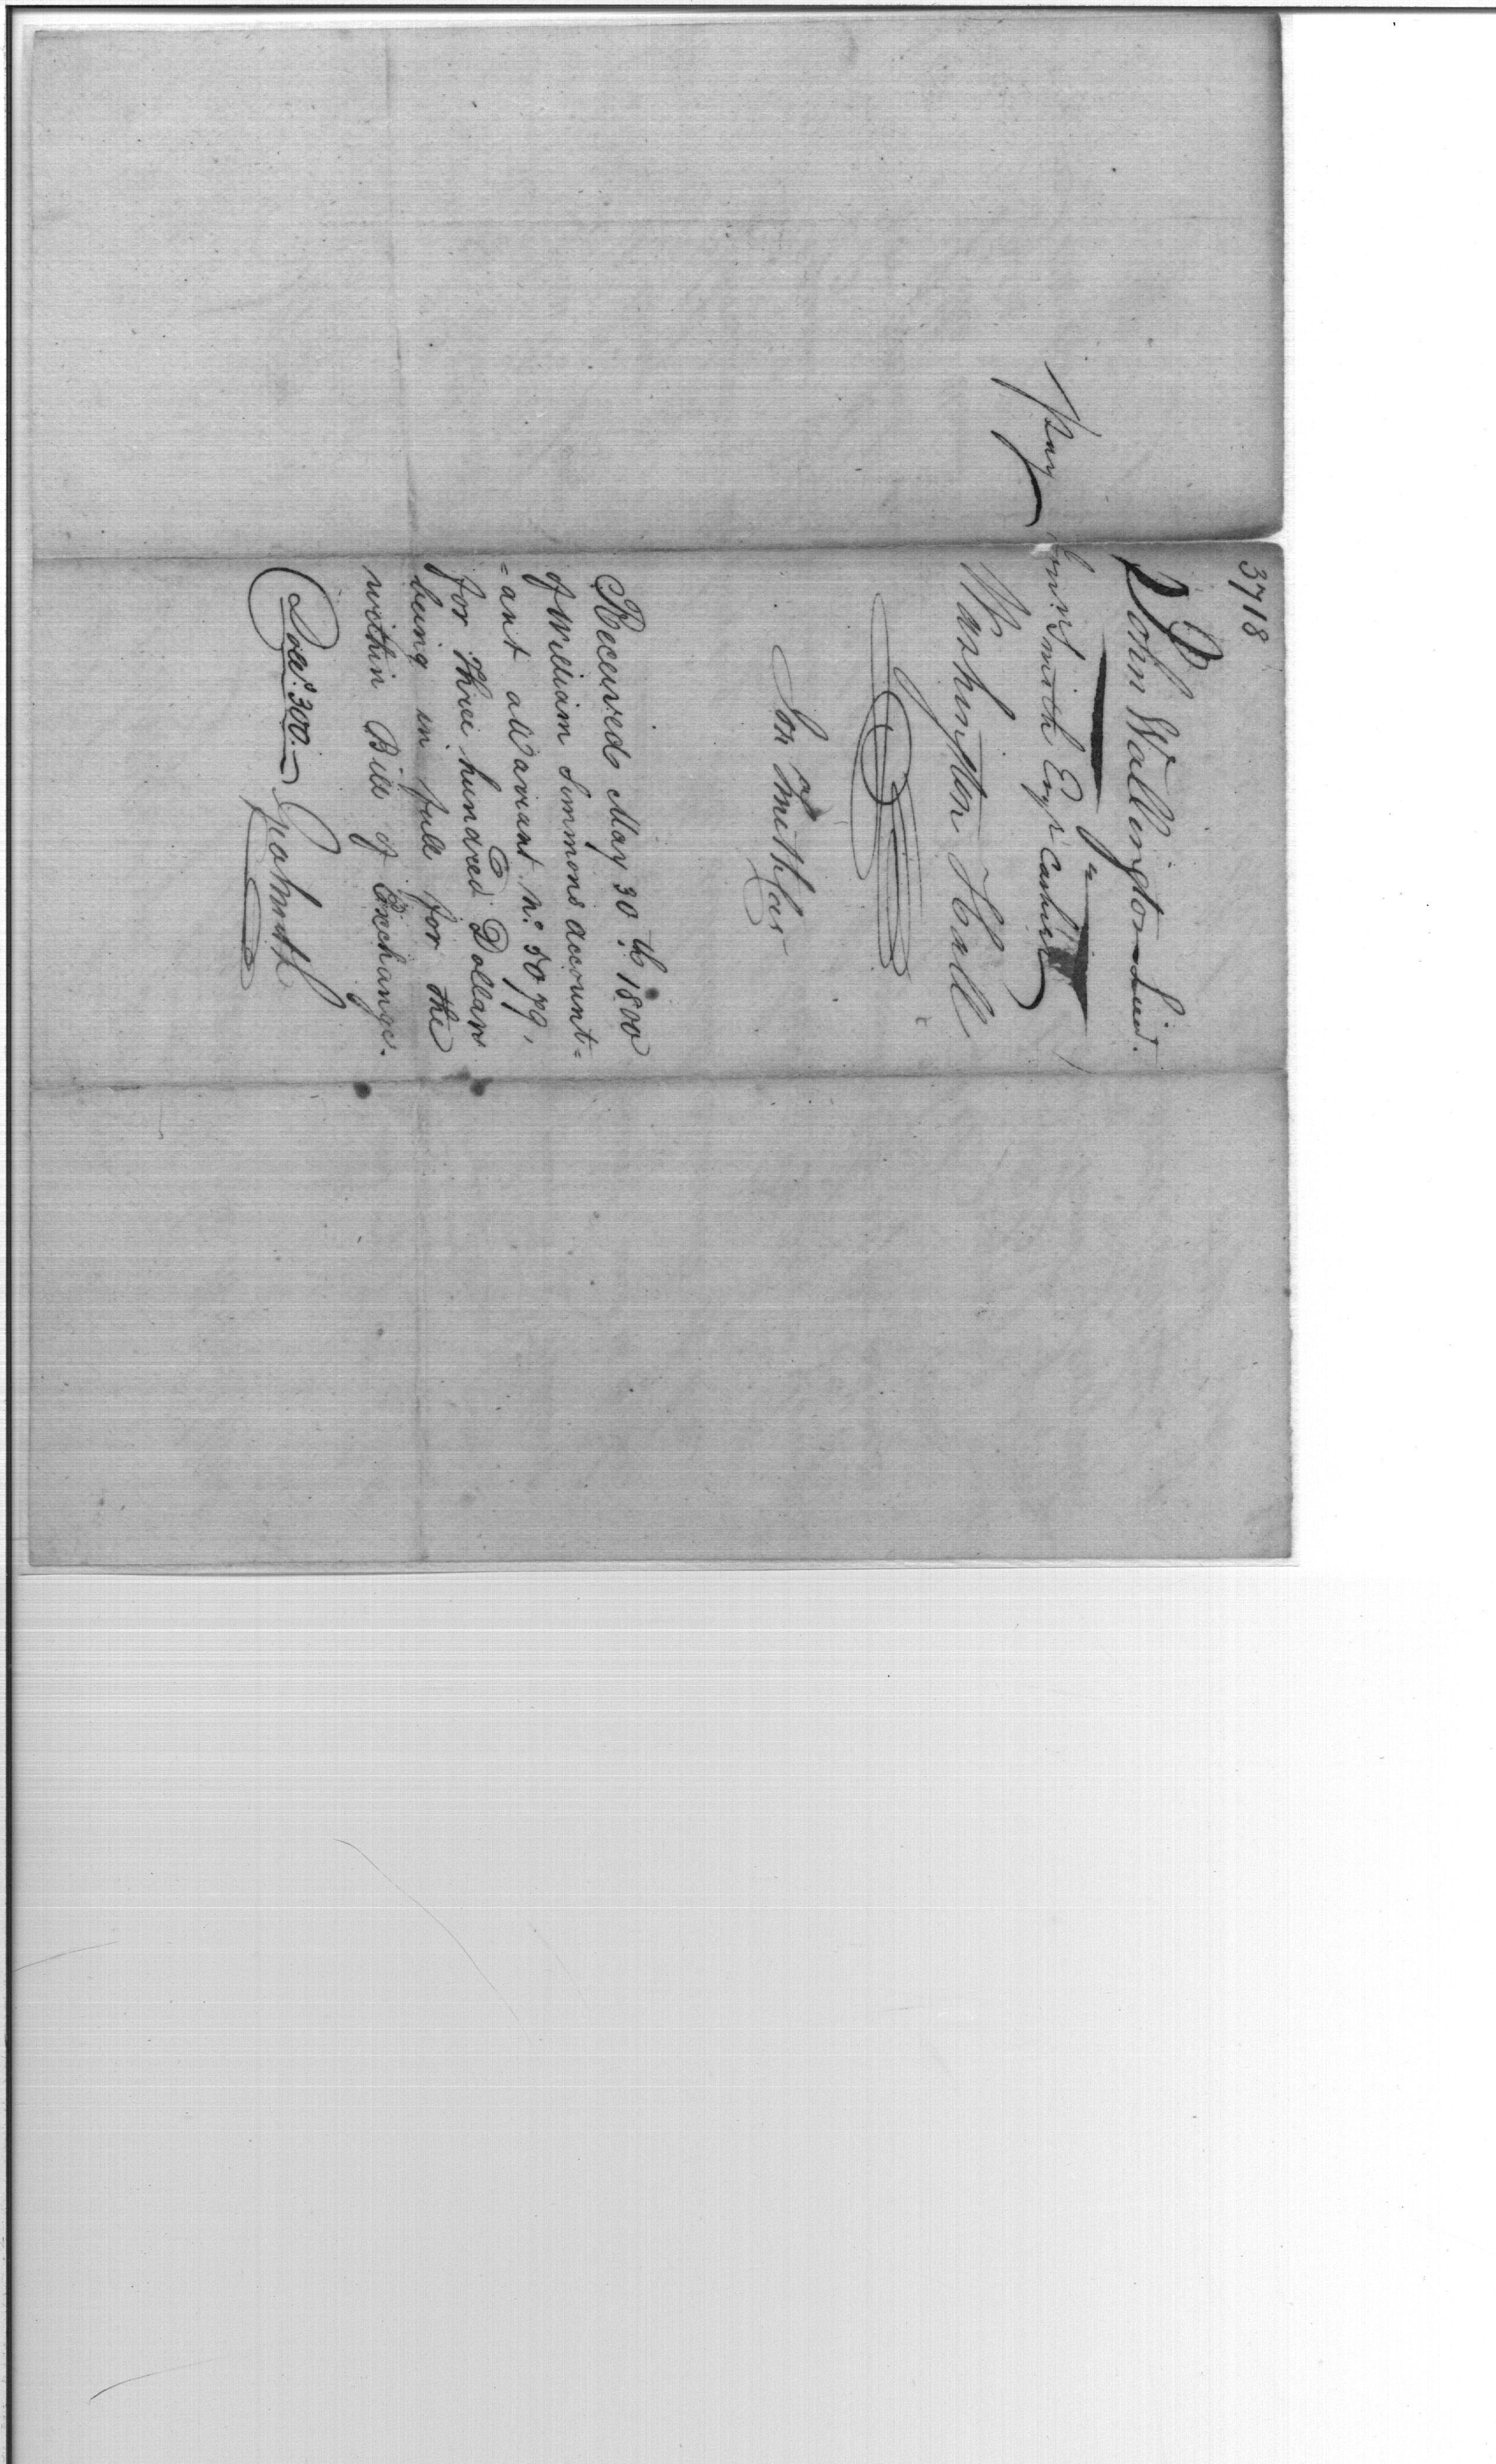 3718
John Wallington Lieut.
Pay Jon Smith Esqr Cashier
Washington Hall
Jon Smith Casr
Received May 30th 1800
of William Simmons account=
=ant a Warrant No. 5079,
for Three hundred Dollars
being in full for the
within Bill of Exchange.
Dolls. 300.— JSmith